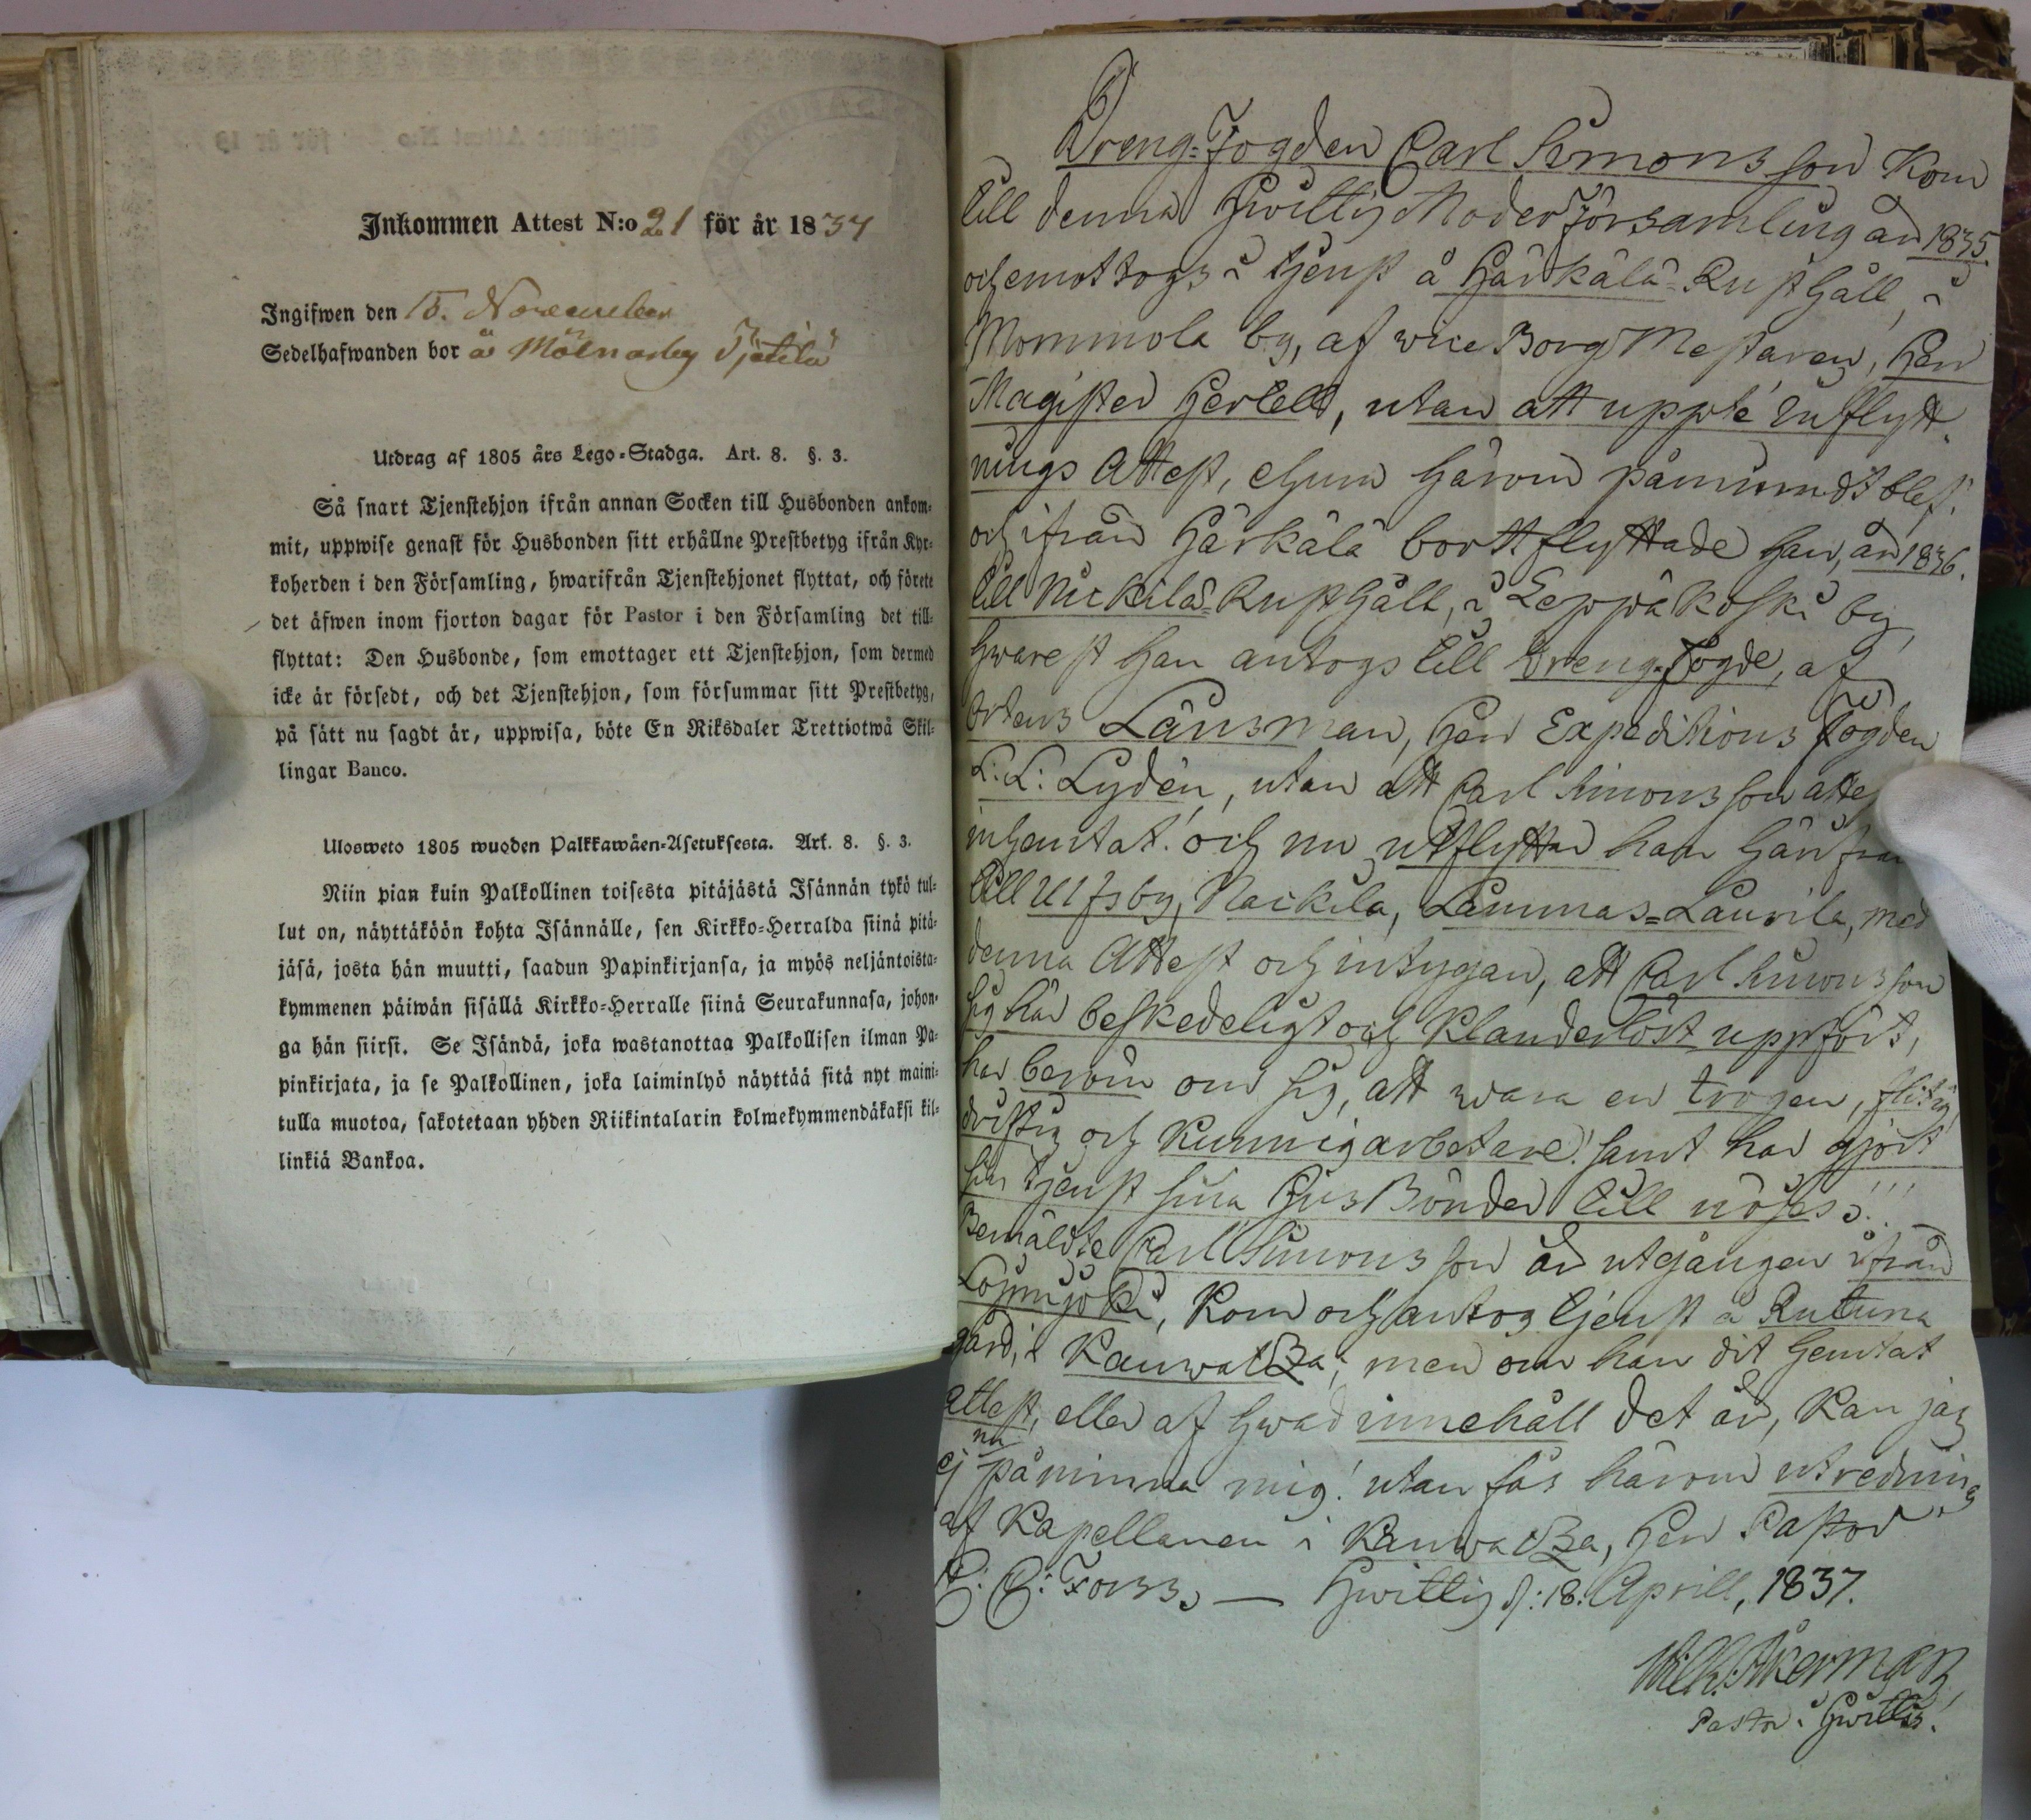 Inkommen Attest N:o 21 för år 1837
Ingifwen den 15. November
Sedelhafwanden bor å Mälnarby Tjätilä
Utdrag af 1805 års Lego-Stadga. Art. 8. §. 3.
Så snart Tjenstehjon ifrån annan Socken till Husbonden ankom-
mit, uppwise genast för Husbonden sitt erhållne Prestbetyg ifrån Kyr-
koherden i den Församling, hwarifrån Tjenstehjonet flyttat, och förete
det äfwen inom fjorton dagar för Pastor i den Församling det till-
flyttat: Den Husbonde, som emottager ett Tjenstehjon, som dermed
icke är försedt, och det Tjenstehjon, som försummar sitt Prestbetyg,
på sätt nu sagdt är, uppwisa, böte En Riksdaler Trettiotwå Skil-
lingar Banco.
Ulosweto 1805 wuoden Palkkawäen-Asetuksesta. Art. 8. §. 3.
Niin pian kuin Palkollinen toisesta pitäjästä Isännän tykö tul-
lut on, näyttäköön kohta Isännälle, sen Kirkko-Herralda siinä pitä-
jäsä, josta hän muutti, saadun Papinkirjansa, ja myös neljäntoista-
kymmenen päiwän sisällä Kirkko-Herralle siinä Seurakunnasa, johon-
ga hän siirsi. Se Isändä, joka wastanottaa Palkollisen ilman Pa-
pinkirjata, ja se Palkollinen, joka laiminlyö näyttää sitä nyt maini-
tulla muotoa, sakotetaan yhden Riikintalarin kolmekymmendäkaksi kil-
linkiä Bankoa.
Dreng-Fogden Carl Simonsson Kom
till denna Hwittis Moder Församling år 1835.
och emottogs i tjenst å Härkälä-Rusthåll, i
Mommola by, af wice BorgMestaren, Herr
Magister Hertell, utan att uppte inflytt-
nings Attest, ehuru härom påmindt blef.
och ifrån Härkälä bortflyttade han, år 1836.
till Nickilä-Rusthåll, i Leppäkoski by,
hwarest han antogs till Dreng-Fogde, af
Ortens Länsman, Herr Expeditions Fogden
L: L: Lydén, utan att Carl Simonsson attest
inhemtat! och nu utflyttar han härifrån
till Ulfsby, Nackila, Lammas-Laurila, med
denna Attest och intygan, att Carl Simonsson
sig här beskedeligt och Klanderlöst uppfört,
har beröm om sig, att wara en trogen, flitig,
driftig och Kunnig arbetare! samt har gjort
sin tjenst sina HusBönder till nöjes!!!
Bemälte Carl Simonsson är utgången ifrån
Loimijoki, Kom och antog tjenst å Rutuna
gård, i Kauwatza; men om han dit hemtat
attest, eller af hwad innehåll det är, Kan jag
ej nu påminna mig! utan fås härom utredning
af Kapellanen i Kauwatza, Herr Pastor
Forss. — Hwittis d: 18. Aprill, 1837.
Wilh. Åkerman
Pastor i Hwittis.